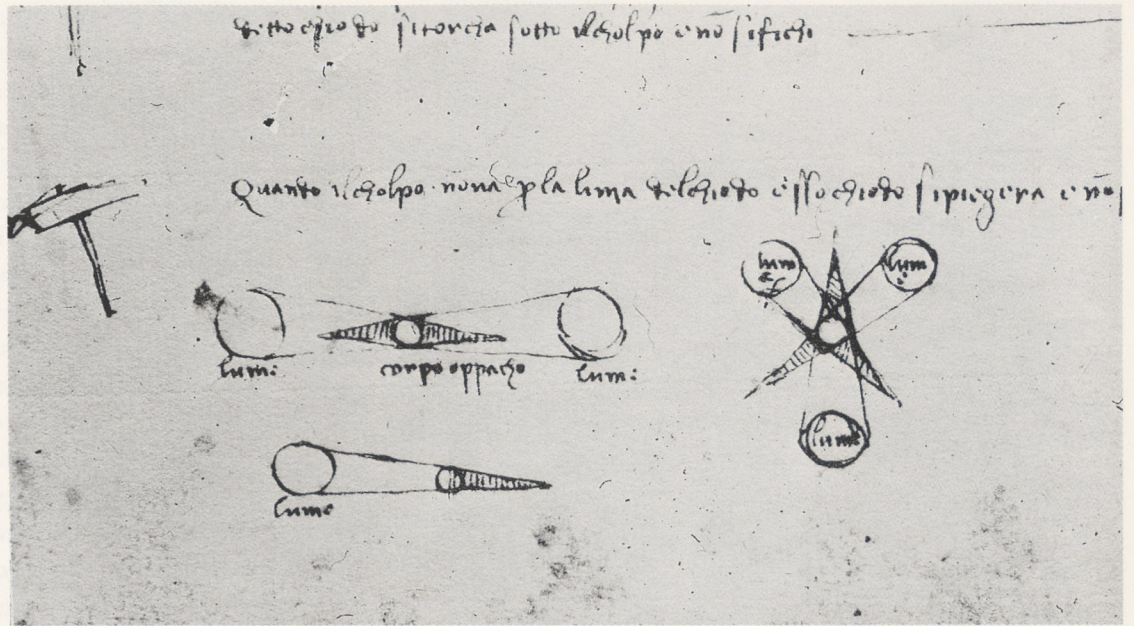 detto chiodo si torcha sotto il cholpo e nō si fichi
Quando il cholpo non va p la linia del chiodo esso chiodo si piegera e nō
lum
lum
lumi
corpo oppacho
lumi
lume
lume